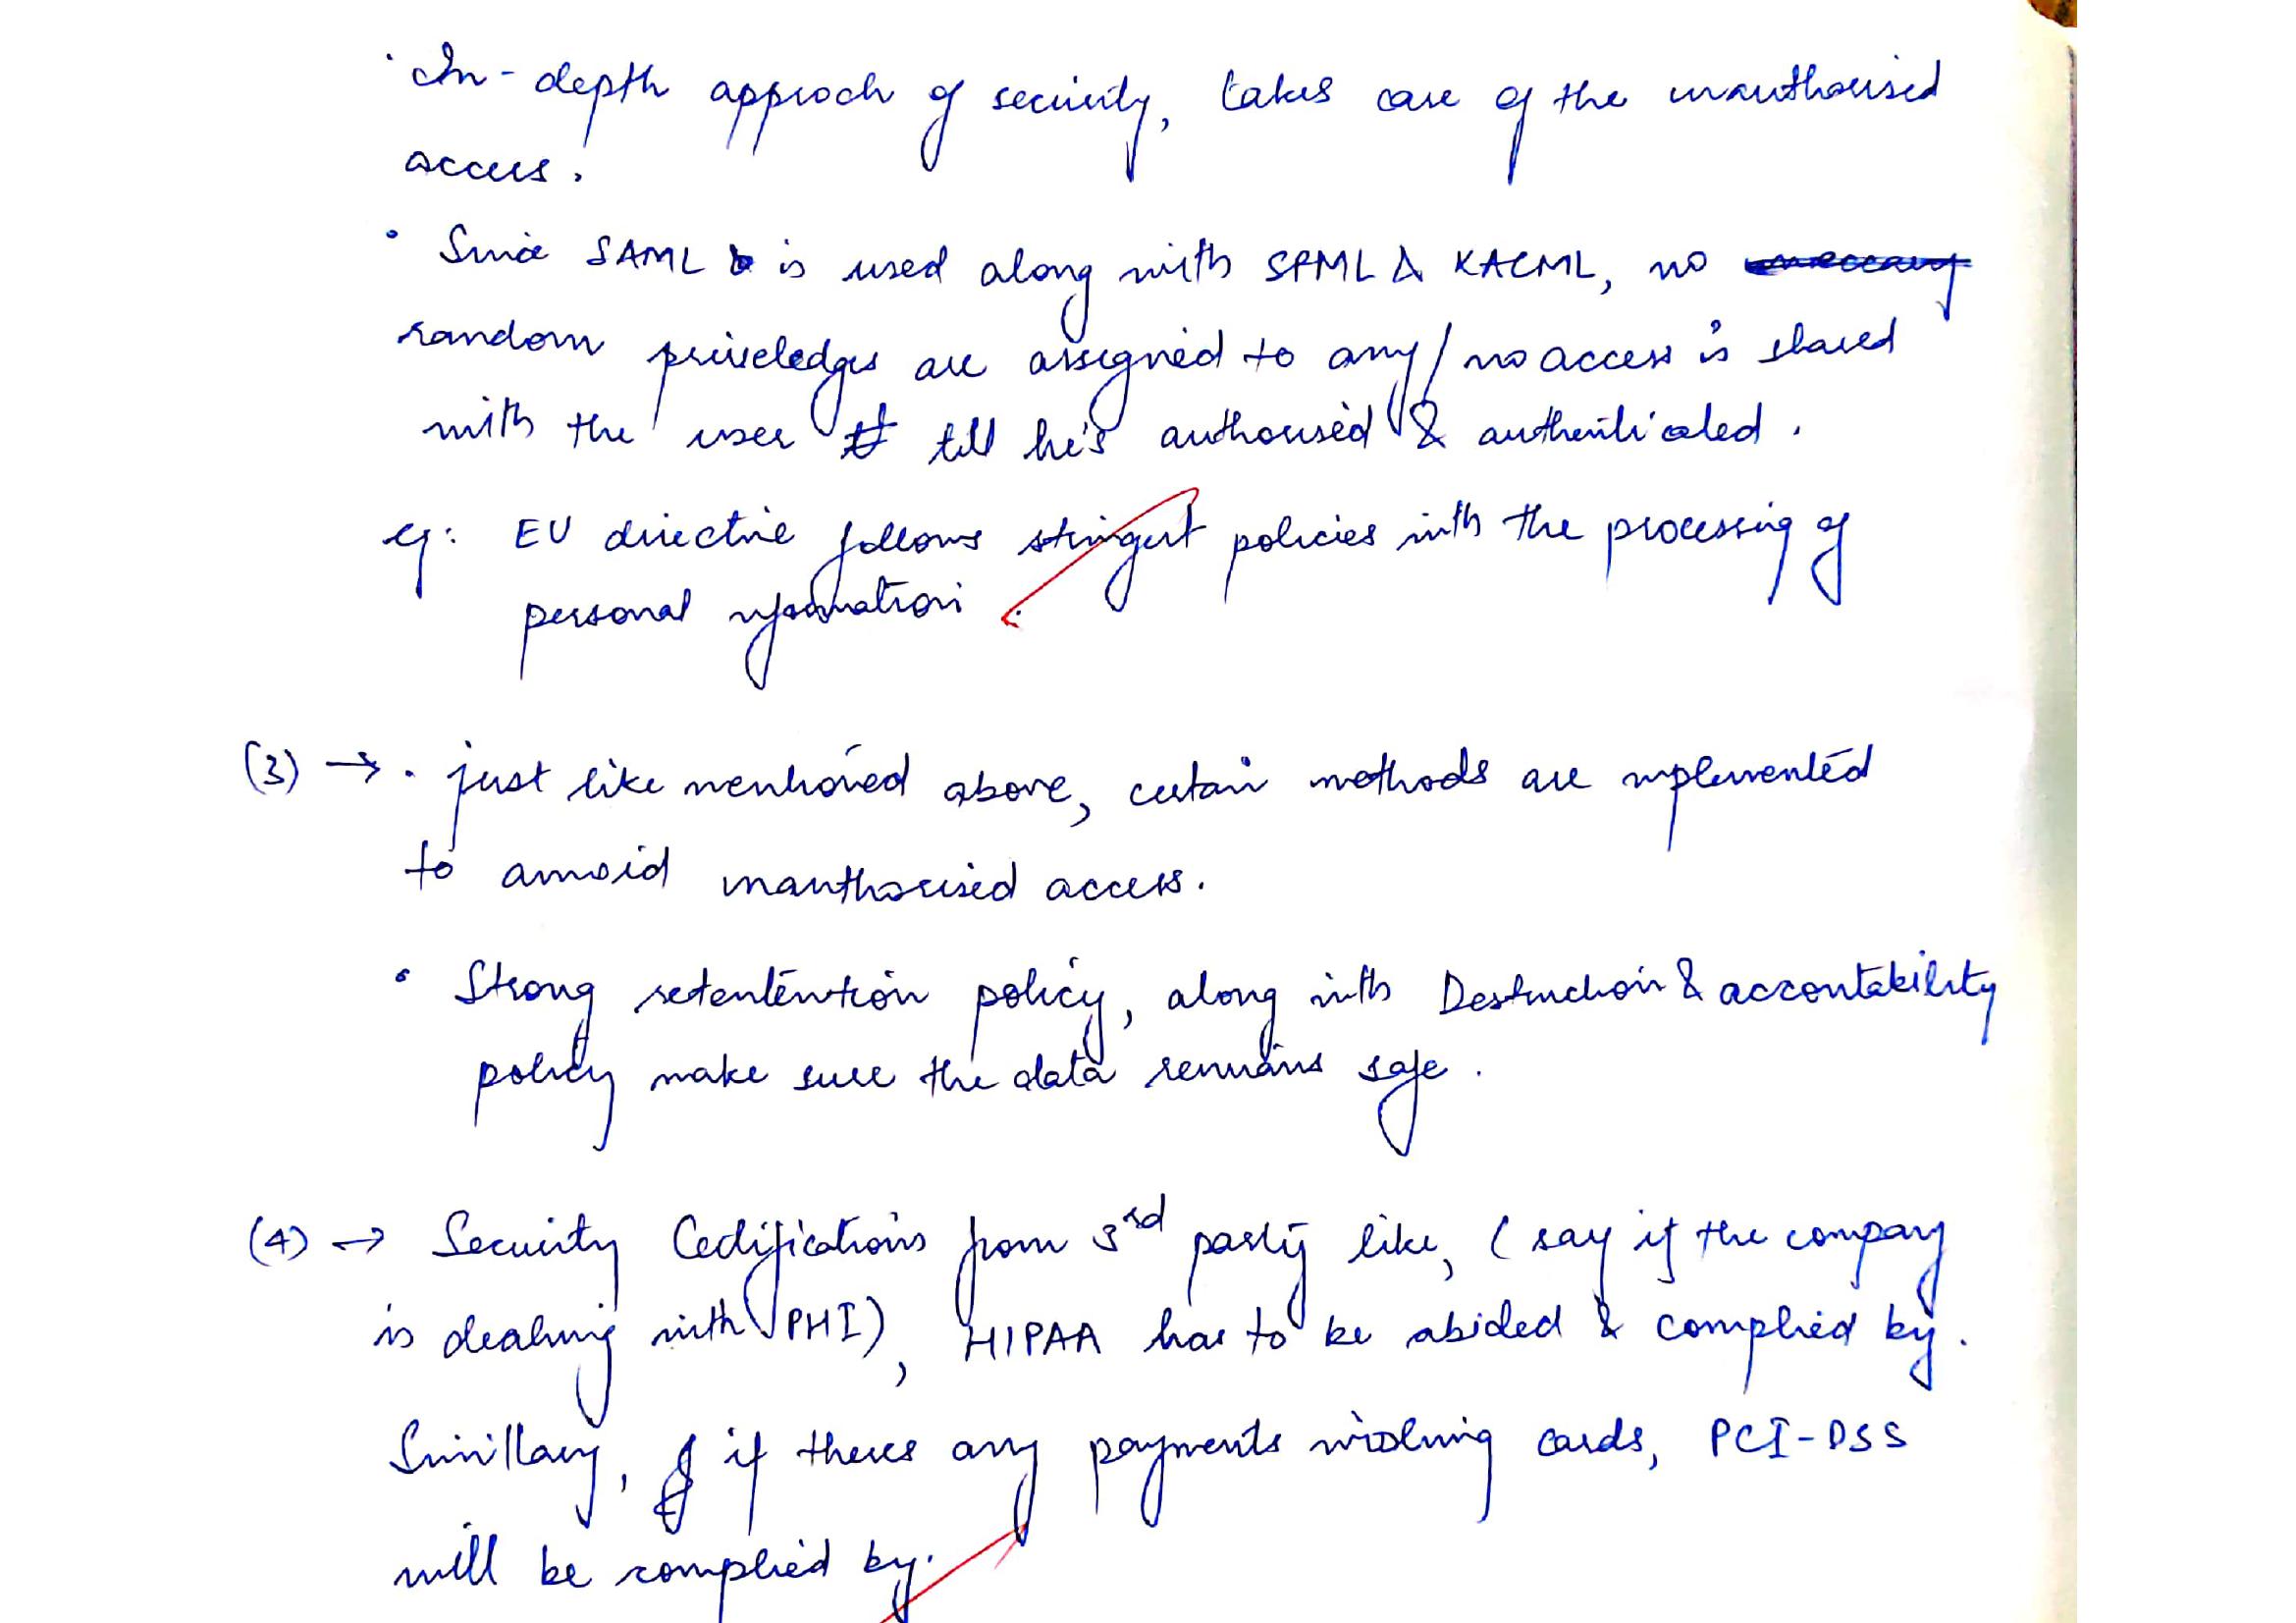 · In-depth approch of security, takes care of the unauthorised
access.
· Since SAML is used along with SPML & XACML, no
random priveledges are assigned to any/no access is shared
with the user till he's authorised & authenticated.
eg: EU directive follows stringent policies with the processing of
personal information.
(3) → · just like mentioned above, certain methods are implemented
to avoid unauthorised access.
· Strong retentention policy, along with Destruction & accountability
policy make sure the data remains safe.
(4) → Security Certifications from 3rd party like, (say if the company
is dealing with PHI), HIPAA has to be abided & complied by.
Similary, if theres any payments involving cards, PCI-DSS
will be complied by.